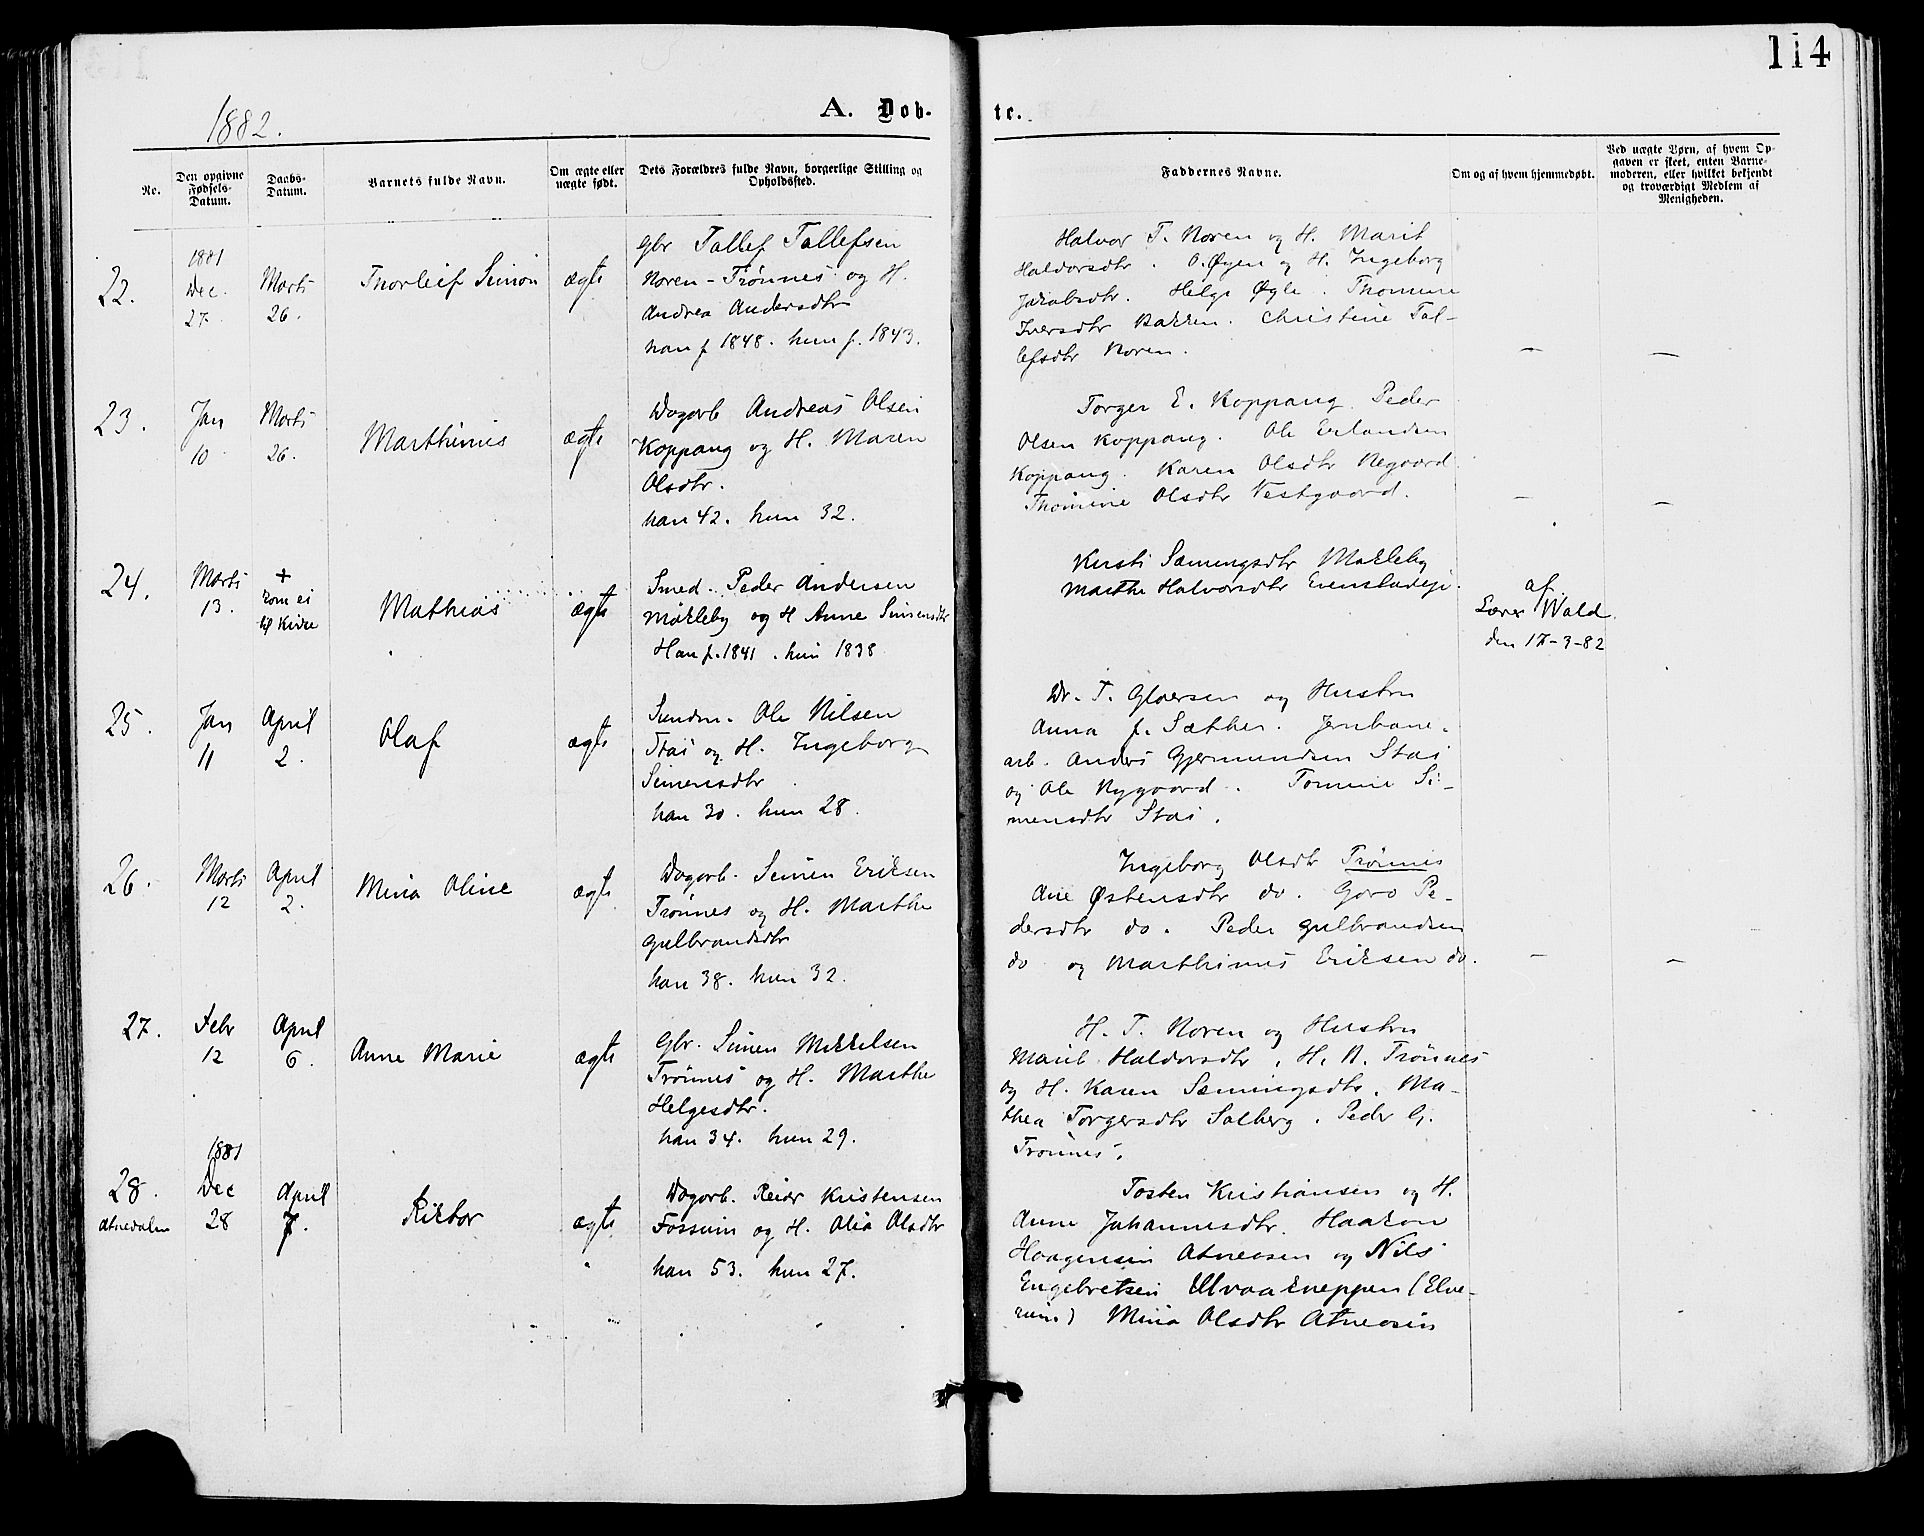 114
1882.
A. Dob-
te.
No.
Den opgivne Fødsels-Datum.
Daabs-Datum.
Barnets fulde Navn.
Om ægte eller uægte født.
Dets Forældres fulde Navn, borgerlige Stilling og Opholdssted.
Faddernes Navne.
Om og af hvem hjemmedøbt.
Ved uægte Børn, af hvem Opgaven er skeet, enten Barnemoderen, eller hvilket bekjendt og troværdigt Medlem af Menigheden.
22.
1881
Dec.
27
Marts
26.
Thorleif Simon
ægte
Gbr Tallef Tallefsen
Noren - Trønnes og H.
Andrea Andersdtr
han f 1848. hun f. 1843.
Halvor T. Noren og H. Marit
Haldorsdtr. O. Øyen og H. Ingeborg
Jakobsdtr. Helge Øgle. Thomine
Iversdtr Bakken. Christine Tal-
lefsdtr Noren.
–
–
23.
Jan
10
Marts
26.
Marthinus
ægte
Dagarb Andreas Olsen
Koppang og H. Maren
Olsdtr.
han 42. hun 32.
Torger E. Koppang. Peder
Olsen Koppang. Ole Erlandsen
Koppang. Karen Olsdtr Negaard
Thomine Olsdtr Vestgaard.
–
–
24.
Marts
13.
+
kom ei
til Kirke
Mathias
ægte
Smed. Peder Andersen
Møkleby og H Anne Simensdtr
Han f. 1841. hun 1838
Kersti Sæmingsdtr Møkleby
Marthe Halvorsdtr Evenstadeje.
af
Lærer Wald.
den 17-3-82
25.
Jan
11
April
2.
Olaf
ægte
Sundm. Ole Nilsen
Stai og H. Ingeborg
Simensdtr
han 30. hun 28.
Dr. T. Gløersen og Hustru
Anna f. Sæther. Jernbane-
arb. Anders Gjermundsen Stai
og Ole Nygaard. Tomine Si-
mensdtr Stai.
26.
Marts
12
April
2.
Mina Oline
ægte
Dagarb. Simen Eriksen
Trønnes og H. Marthe
Gulbrandsdtr
han 38. hun 32.
Ingeborg Olsdtr Trønnes
Ane Østensdtr do. Goro Pe-
dersdtr do. Peder Gulbrandsen
do og Marthinus Eriksen do.
–
–
27.
Febr
12
April
6.
Anne Marie
ægte
Gbr. Simen Mikkelsen
Trønnes og H. Marthe
Helgesdtr.
han 34. hun 29.
H. T. Noren og Hustru
Marit Haldorsdtr. H. N. Trønnes
og H. Karen Sæmingsdtr. Ma-
thea Torgersdtr Solberg. Peder G.
Trønnes.
28.
Atnedalen
1881
Dec
28
April
7.
Rikbor
ægte
Dagarb. Reier Kristensen
Fossum og H. Olia Olsdtr
han 53. hun 27.
Tosten Kristiansen og H.
Anne Johannesdtr. Haakon
Haagensen Atneosen og Nils
Engebretsen Ulvaakneppen (Elve-
rum) Mina Olsdtr Atneosen